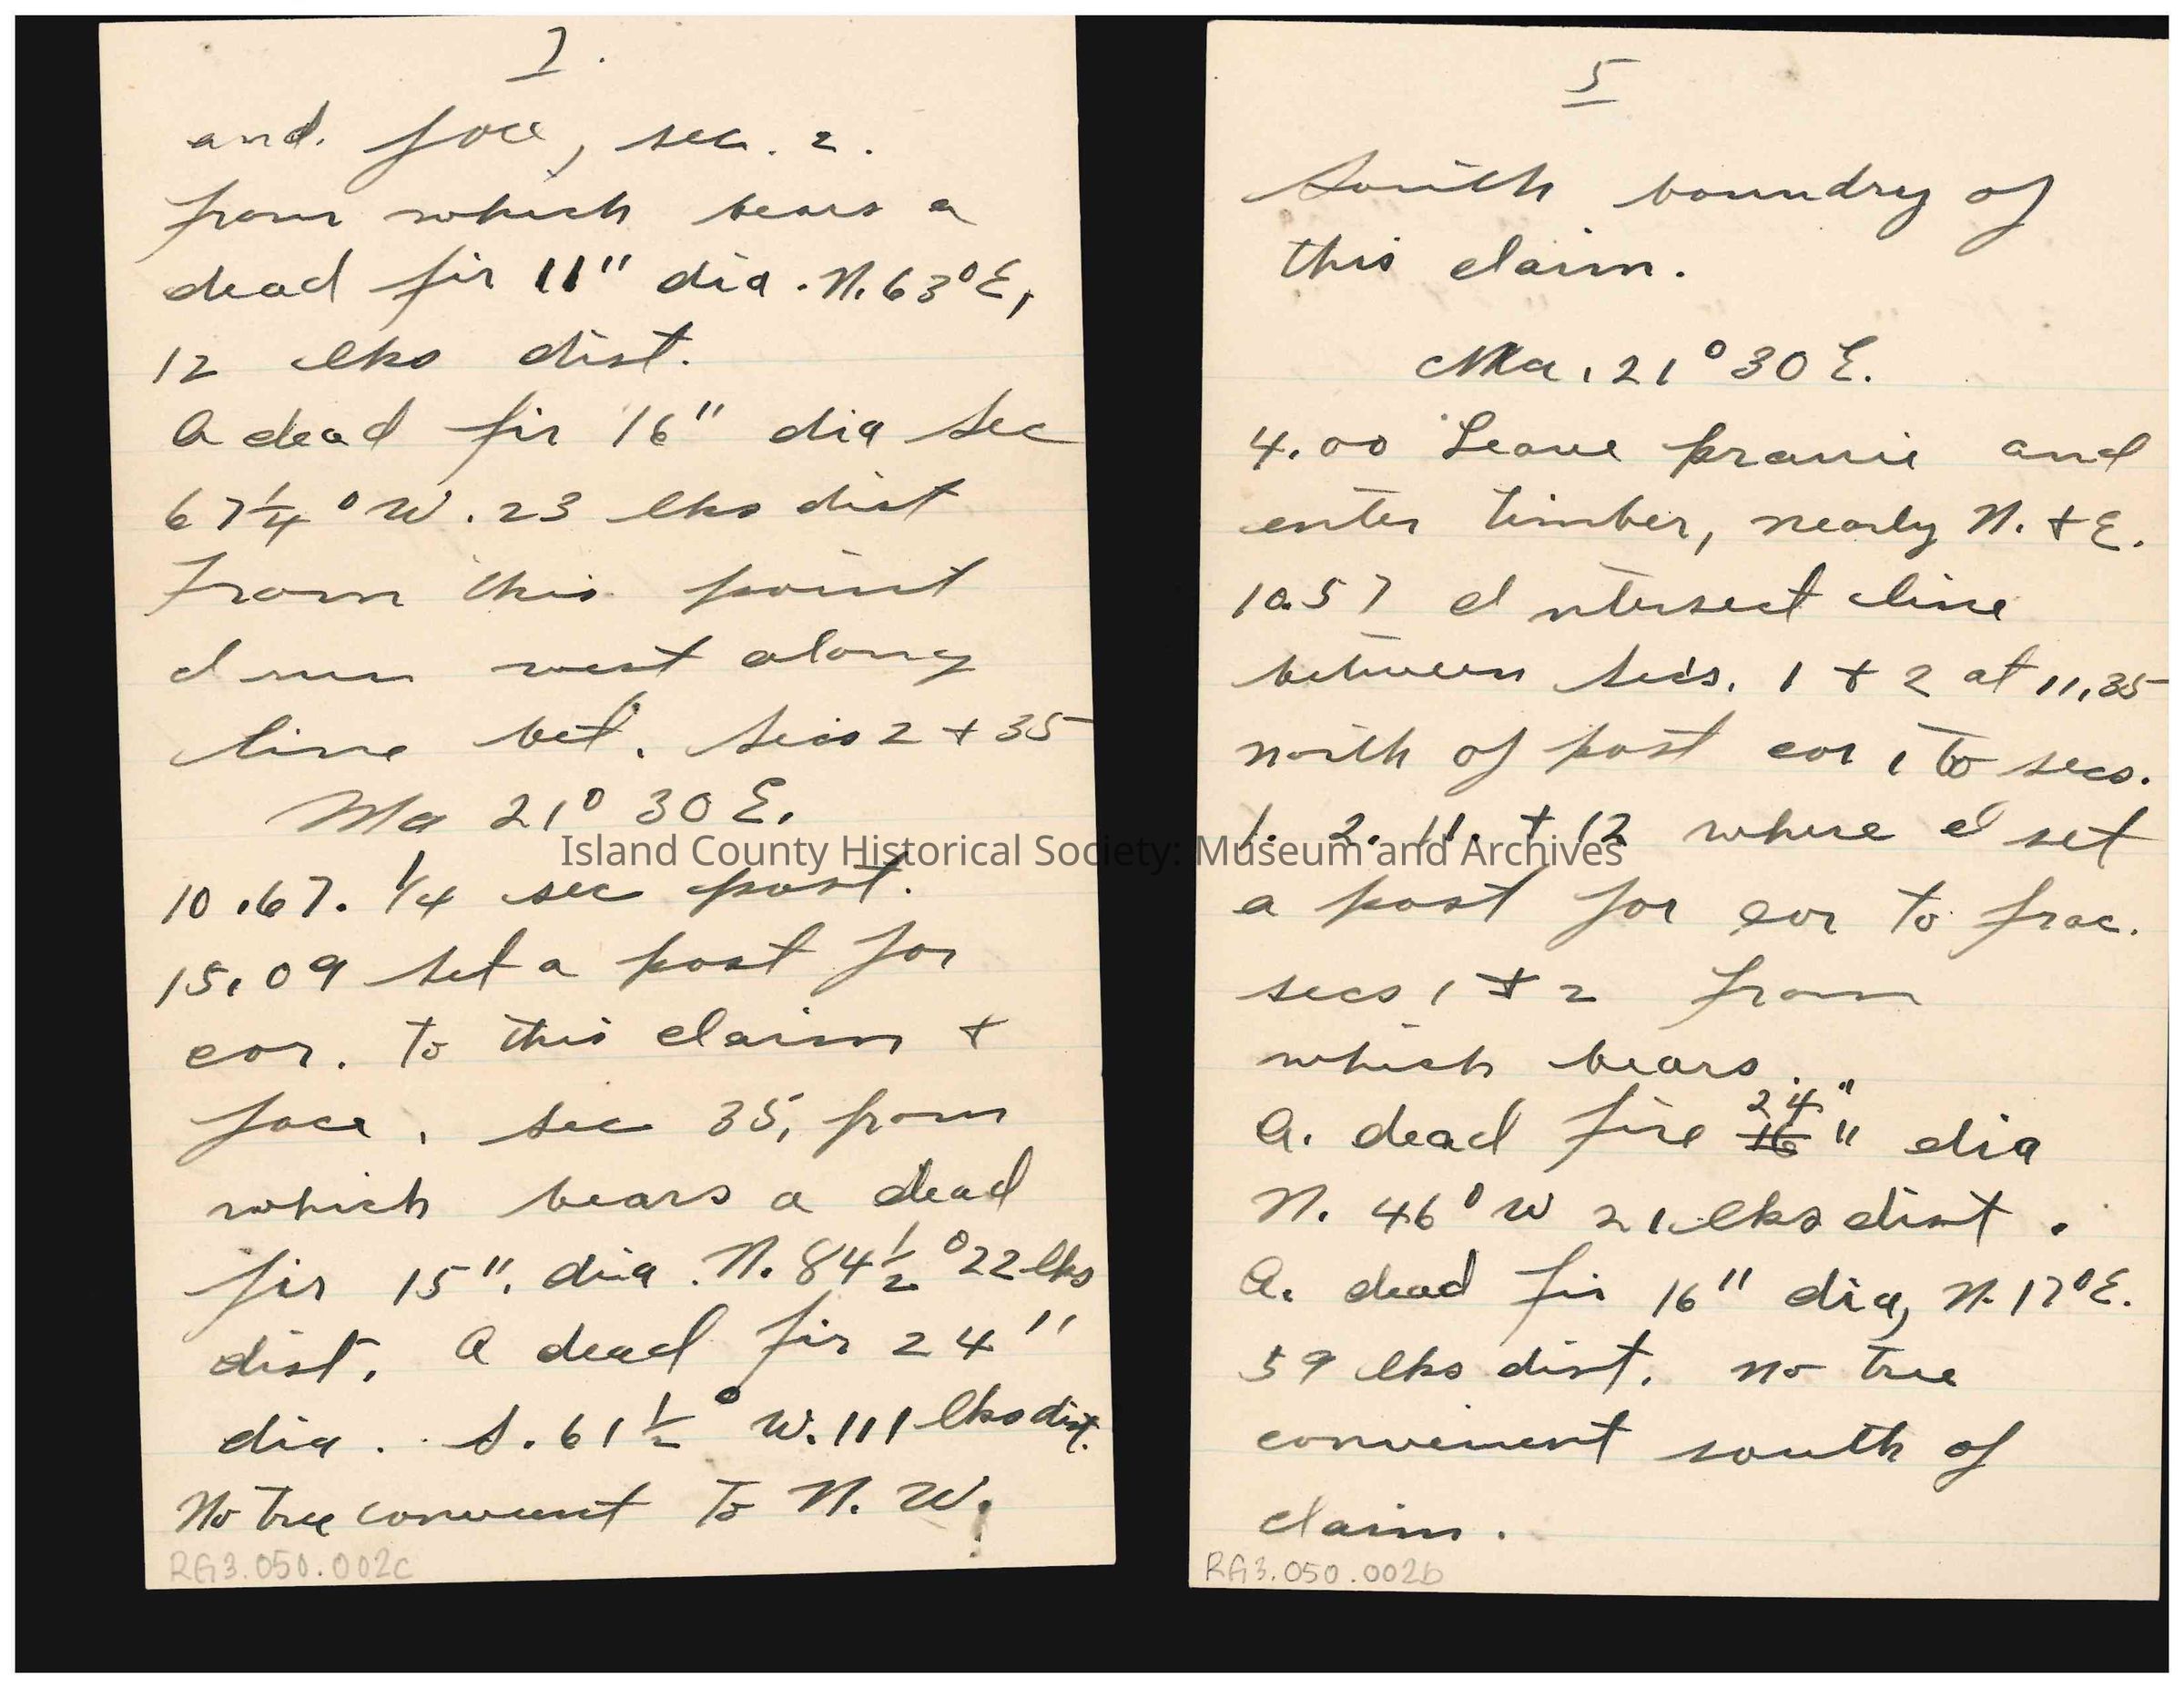 7.
and. face, sec. 2.
from which bears a
dead fir 11" dia. N. 63° E,
12 lks dist.
A dead fir 16" dia Sec
67 1/4 ° W. 23 lks dist
From this point
I run west along
line bet. Secs 2 + 35
Ma 21° 30 E.
10.67. 1/4 sec post.
15.09 Set a post for
cor. to this claim +
face, sec 35, from
which bears a dead
fir 15". dia. N. 84 1/2 ° 22 lks
dist. A dead fir 24"
dia. S. 61 1/2 ° W. 111 lks dist.
No tree convenient to N. W.
RG3.050.002c
5
South boundry of
this claim.
Ma. 21° 30 E.
4.00 Leave prairie and
enter timber, nearly N. + E.
10.57 Intersect line
between Secs. 1 + 2 at 11.35
north of post cor. to secs.
1. 2. 11. + 12 where I set
a post for cor to frac.
secs 1 + 2 from
which bears.
24"
A. dead fire 16" dia
N. 46° W 21 lks dist.
A. dead fir 16" dia, N. 17° E.
59 lks dist. no tree
convenient south of
claim.
RG3.050.002b
Island County Historical Society: Museum and Archives